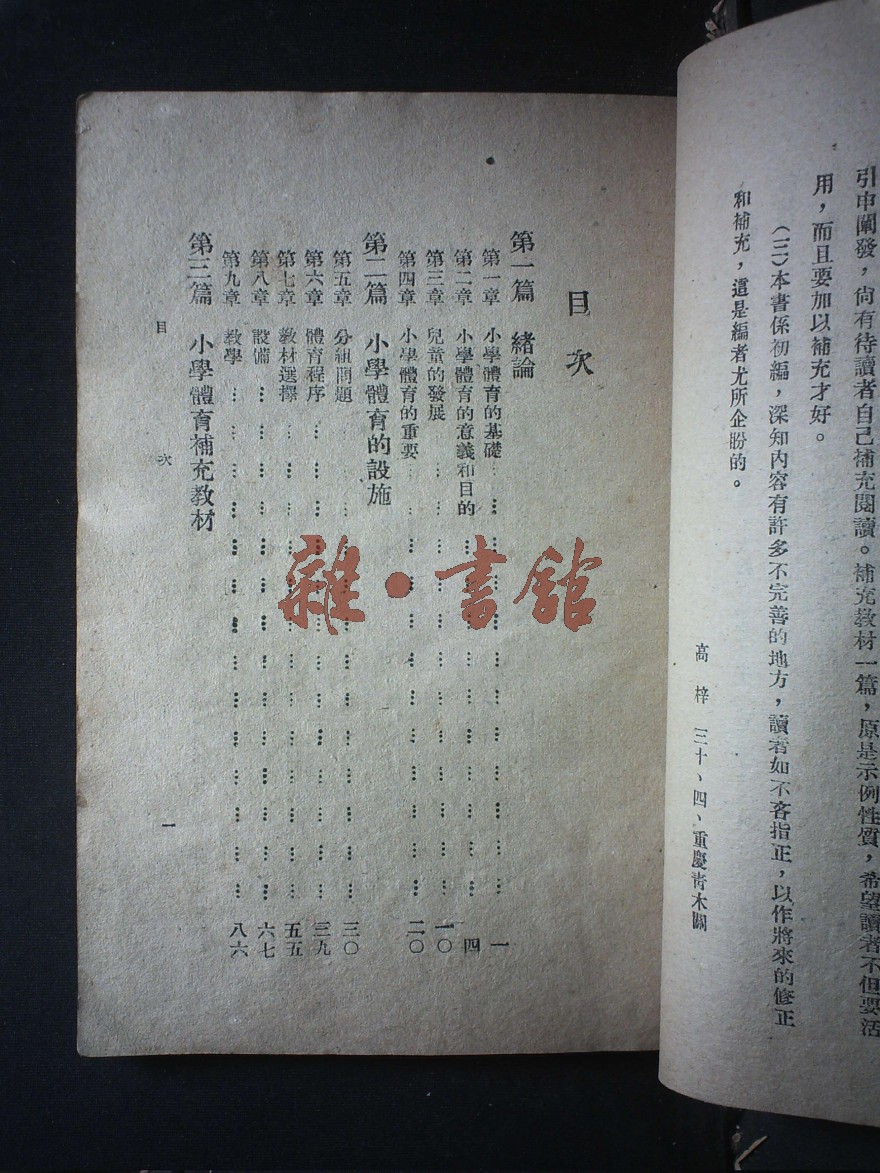 引申闡發，尙有待讀者自己補充閱讀。補充教材一篇，原是示例性質，希望讀者不但要活
用，而且要加以補充才好。
(三)本書係初編，深知內容有許多不完善的地方，讀者如不吝指正，以作將來的修正
和補充，這是編者尤所企盼的。
高梓 三十、四、重慶青木關
目次
第一篇 緒論
第一章 小學體育的基礎 一
第二章 小學體育的意義和目的 四
第三章 兒童的發展 一〇
第四章 小學體育的重要 二〇
第二篇 小學體育的設施
第五章 分組問題 三〇
第六章 體育程序 三九
第七章 教材選擇 五五
第八章 設備 六七
第九章 教學 八六
第三篇 小學體育補充教材
目次 一
雜·書館